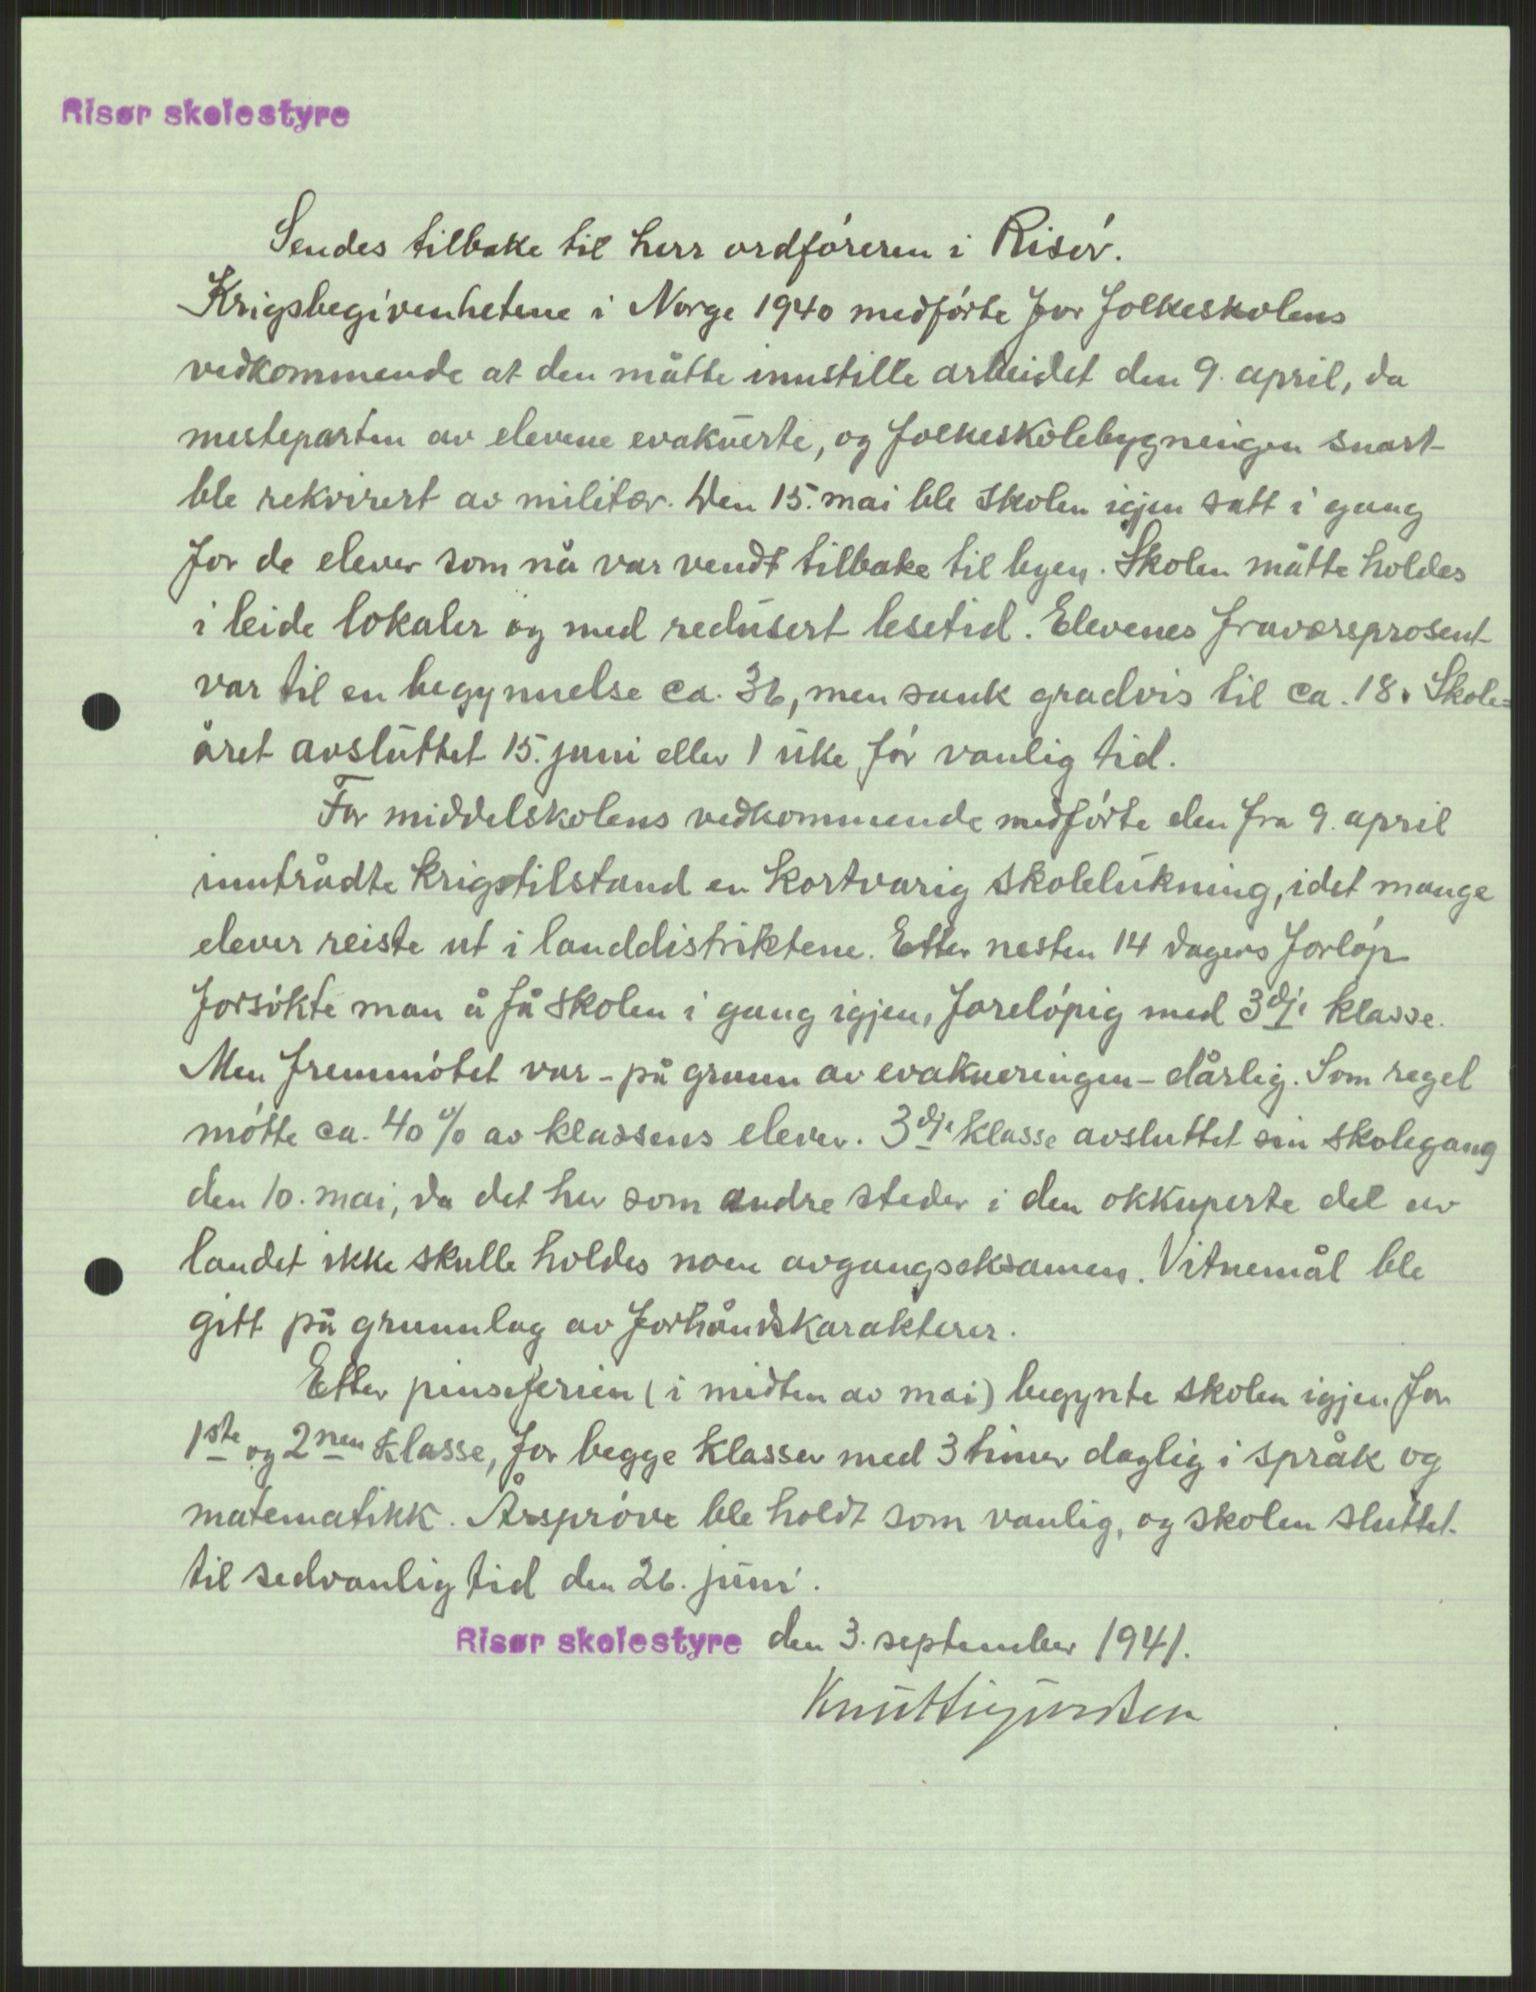 Risør skolestyre
Sendes tilbake til herr ordføreren i Risør.
Krigsbegivenhetene i Norge 1940 medførte for folkeskolens
vedkommende at den måtte innstille arbeidet den 9. april, da
mesteparten av elevene evakuerte, og folkeskolebygningen snart
ble rekvirert av militær. Den 15. mai ble skolen igjen satt i gang
for de elever som nå var vendt tilbake til byen. Skolen måtte holdes
i leide lokaler og med redusert lesetid. Elevenes fraværsprosent
var til en begynnelse ca. 36, men sank gradvis til ca. 18. Skole=
året avsluttet 15. juni eller 1 uke før vanlig tid.
For middelskolens vedkommende medførte den fra 9. april
inntrådte krigstilstand en kortvarig skolelukning, idet mange
elever reiste ut i landdistriktene. Etter nesten 14 dagers forløp
forsøkte man å få skolen i gang igjen, foreløpig med 3dje klasse.
Men fremmøtet var - på grunn av evakueringen - dårlig. Som regel
møtte ca. 40 % av klassens elever. 3dje klasse avsluttet sin skolegang
den 10. mai, da det her som andre steder i den okkuperte del av
landet ikke skulle holdes noen avgangseksamen. Vitnemål ble
gitt på grunnlag av forhåndskarakterer.
Etter pinseferien (i midten av mai) begynte skolen igjen for
1ste og 2nen klasse, for begge klasser med 3 timer daglig i språk og
matematikk. Årsprøve ble holdt som vanlig, og skolen sluttet
til sedvanlig tid den 26. juni.
Risør skolestyre den 3. september 1941.